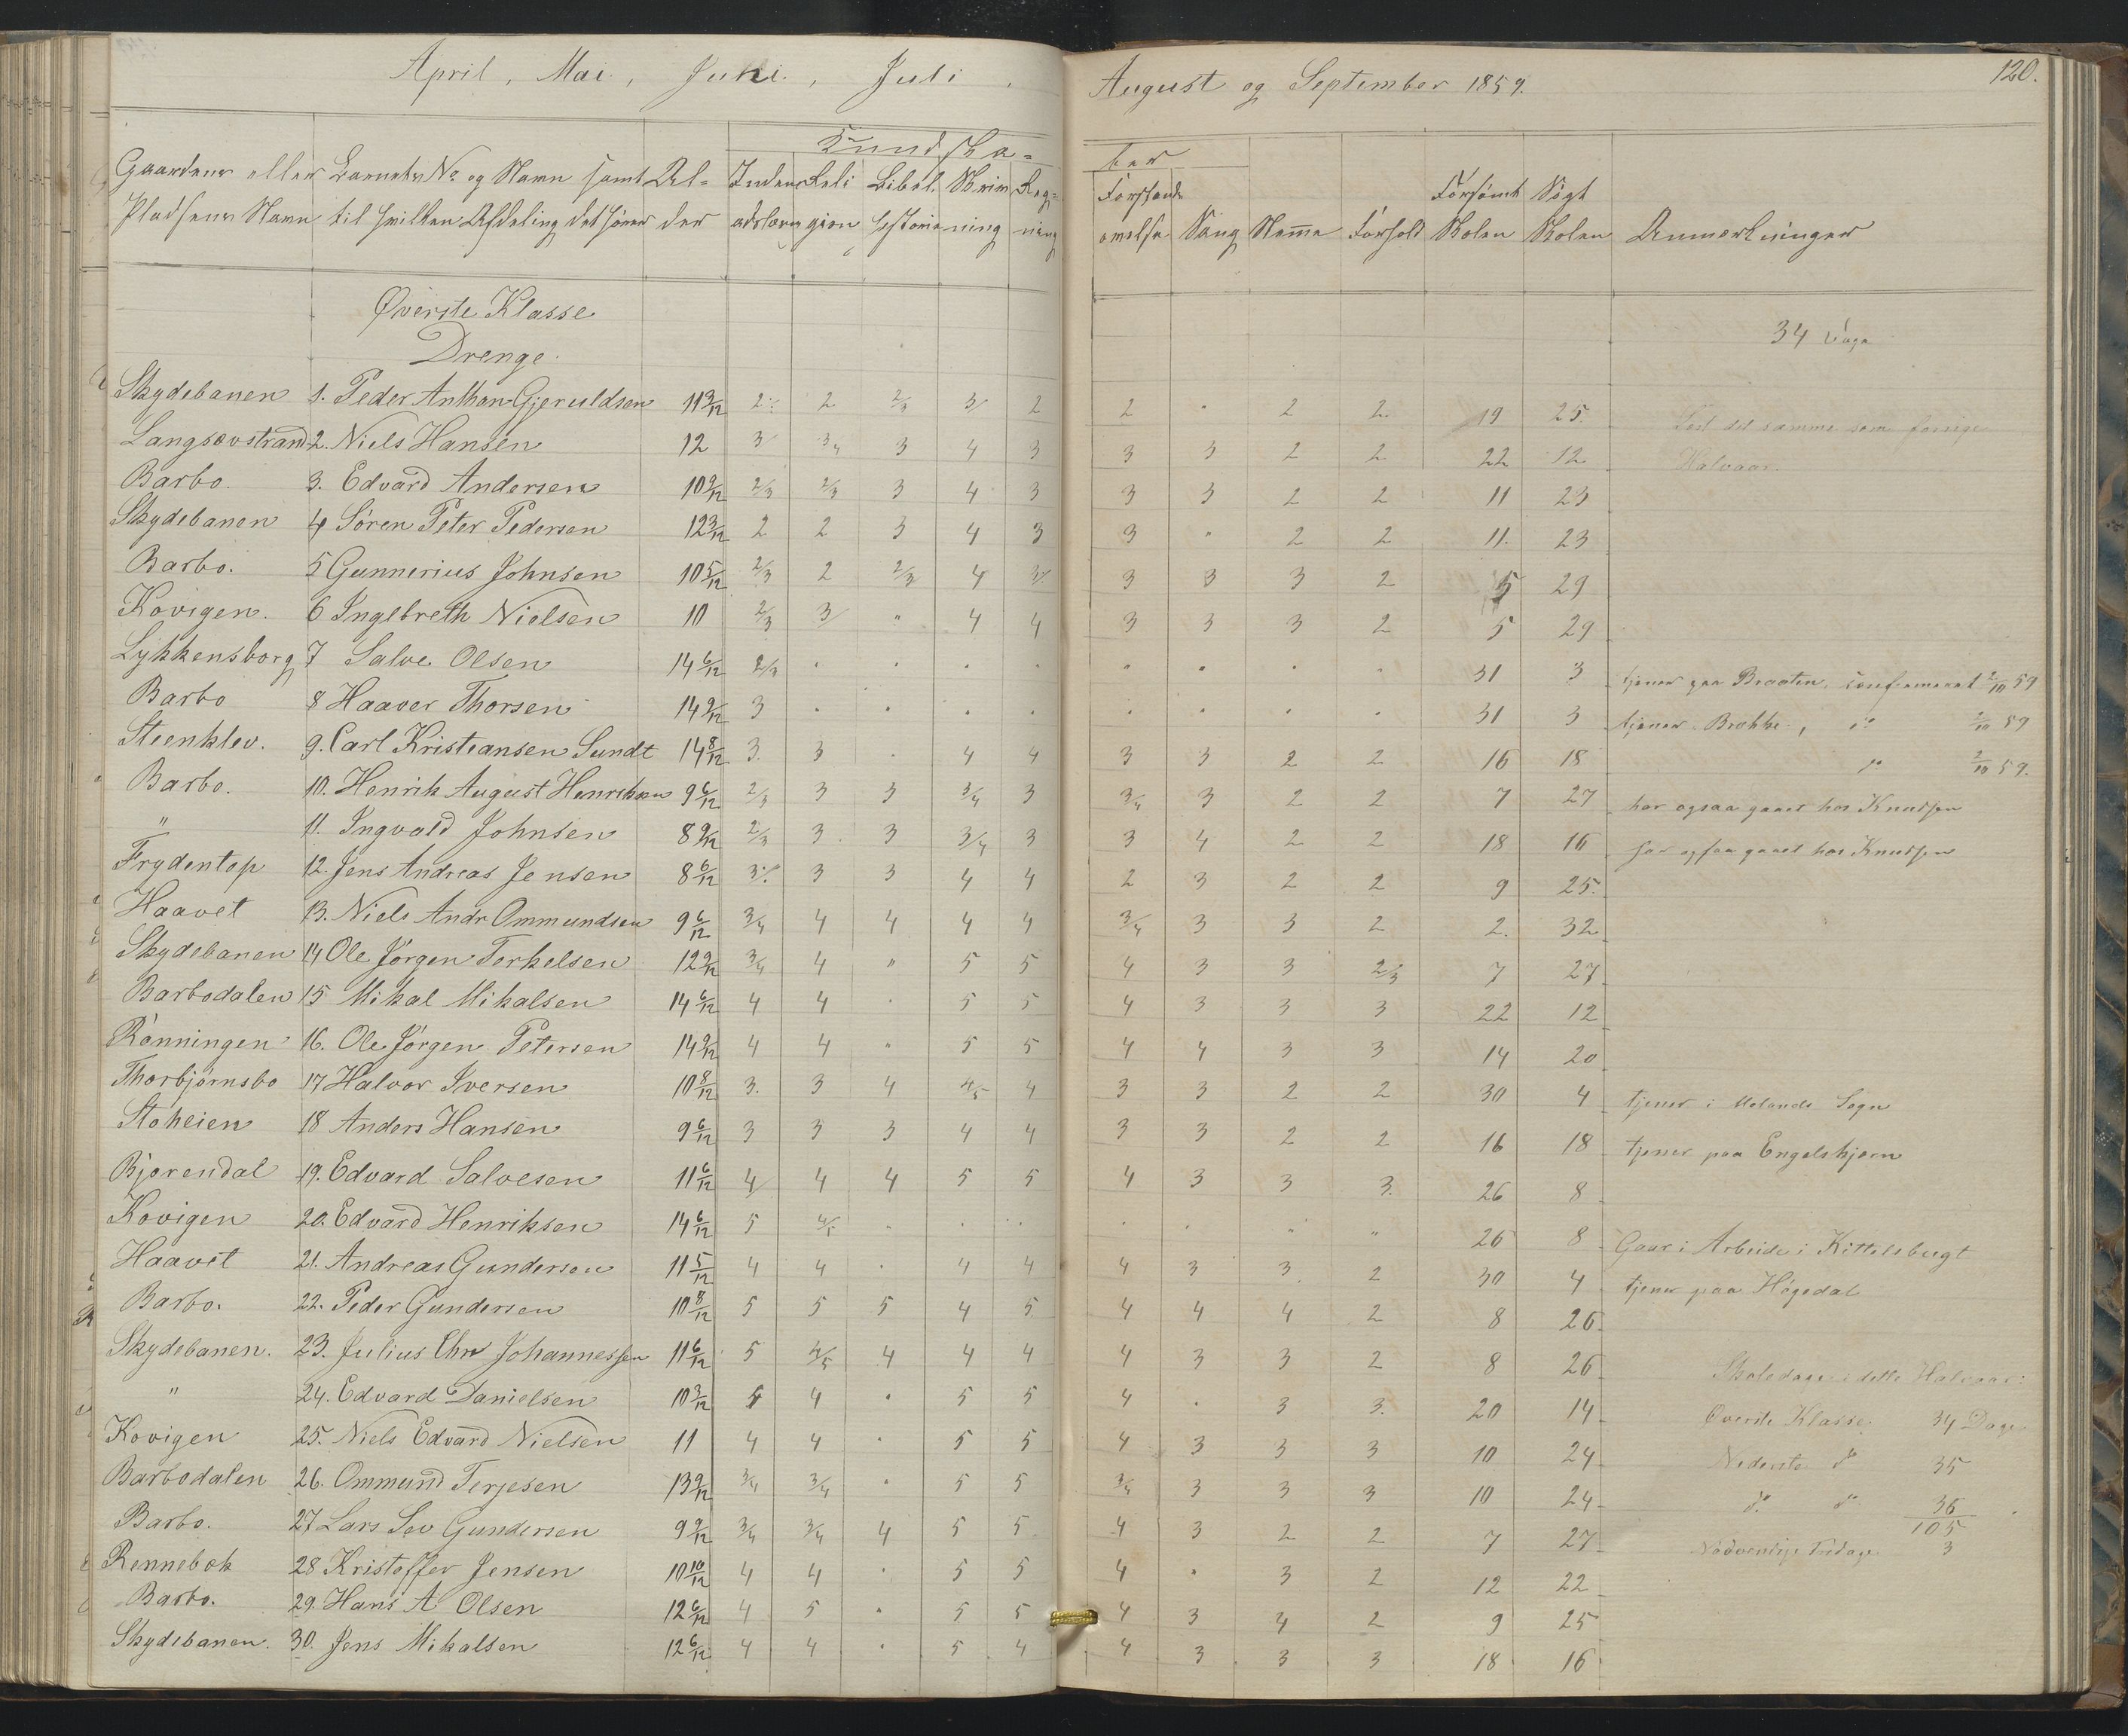 April, Mai, Juni, Juli,
August og September 1859.
120.
Kundska=
ber
Gaardens eller Barnets No og Navn samt Al= Inden Reli Bibel Skriv Reg=
Pladsens Navn til hvilken Afdeling det hører der adslæsn gion historie ning ning
Forstands Forsømt Søgt
øvelse Sang Nemme Forhold Skolen Skolen Anmærkninger
Øverste Klasse
Drenge.
34 Dage
Skydebanen 1. Peder Anthon Gjeruldsen 11 9/12 2 2 2/3 3 2 2 " 2 2 19 25 Læst det samme som forrige
Langsævstrand 2. Niels Hansen 12 3 3/4 3 4 3 3 3 2 2 22 12 Halvaar.
Barbo. 3. Edvard Andersen 10 9/12 2/3 2/3 3 4 3 3 3 2 2 11 23
Skydebanen 4 Søren Peter Pedersen 12 3/12 2 2 3 4 3 3 " 2 2 11 23
Barbo. 5 Gunnerius Johnsen 10 5/12 2/3 2 2/3 4 3 3 3 3 2 5 29
Kovigen. 6 Ingebreth Nielsen 10 2/3 3 " 4 4 3 3 3 2 5 29
Lykkensborg 7 Salve Olsen 14 6/12 2/3 " " " " " " " " 31 3 tjener paa Braaten, confirmeret 2/10 59
Barbo 8 Haaver Thorsen 14 9/12 3 " " " " " " " " 31 3 tjener Brække, do 2/10 59
Steenklev. 9. Carl Kristiansen Sundt 14 8/12 3 3 " 4 4 3 3 2 2 16 18 do 2/10 59.
Barbo. 10. Henrik August Henriksen 9 6/12 2/3 3 3 3/4 3 3/4 3 2 2 7 27 har ogsaa gaaet hos Knudsen
" 11. Ingvald Johnsen 8 9/12 2/3 3 3 3/4 3 3 4 2 2 18 16 har ogsaa gaaet hos Knudsen
Frydentop 12. Jens Andreas Jensen 8 6/12 3 3 3 4 4 2 3 2 2 9 25
Haavet 13. Niels Andr Ommundsen 9 6/12 3/4 4 4 4 4 3/4 3 3 2 2 32
Skydebanen 14 Ole Jørgen Terkelsen 12 9/12 3/4 4 " 5 5 4 3 3 2/3 7 27
Barbodalen 15 Mikal Mikalsen 14 6/12 4 4 " 5 5 4 3 3 3 22 12
Rønningen 16. Ole Jørgen Petersen 14 9/12 4 4 " 5 5 4 4 3 3 14 20
Thorbjørnsbo 17 Halvor Iversen 10 8/12 3 3 4 4/5 4 3 3 2 2 30 4 tjener i Molands Sogn
Stoheien 18 Anders Hansen 9 6/12 3 3 3 4 4 3 3 2 2 16 18 tjener paa Engelskjøn
Bjorendal 19. Edvard Salvesen 11 6/12 4 4 4 5 5 4 3 3 3 26 8
Kovigen 20. Edvard Henriksen 14 6/12 5 4/5 " " " " " " " 26 8 Gaar i Arbeide i Kittelsbugt
Haavet 21. Andreas Gundersen 11 5/12 4 4 " 4 4 4 3 3 2 30 4 tjener paa Høgedal
Barbo. 22. Peder Gundersen 10 8/12 5 5 5 4 5 4 4 4 2 8 26
Skydebanen. 23. Julius Chr Johannessen 11 6/12 5 4/5 4 4 4 4 3 3 2 8 26 Skoledage i dette Halvaar:
" 24. Edvard Danielsen 10 3/12 4 4 " 5 5 4 " 3 3 20 14 Øverste Klasse 34 Dage
Kovigen 25. Niels Edvard Nielsen 11 4 4 " 5 5 4 3 3 3 10 24 Nederste do 35
Barbodalen 26. Ommund Terjesen 13 9/12 3/4 3/4 " 5 5 3/4 3 3 3 10 24 do do 36
Barbo. 27 Lars Sev Gundersen 9 9/12 3/4 3/4 4 5 5 4 3 2 2 7 27 105
Rennebok 28 Kristoffer Jensen 10 10/12 4 4 " 5 5 4 " 3 2 12 22 Nødvendige Fridage 3
Barbo. 29. Hans A Olsen 12 6/12 4 5 " 5 5 4 3 4 2 9 25
Skydebanen. 30. Jens Mikalsen 12 6/12 4 4 " 5 4 4 3 3 3 18 16